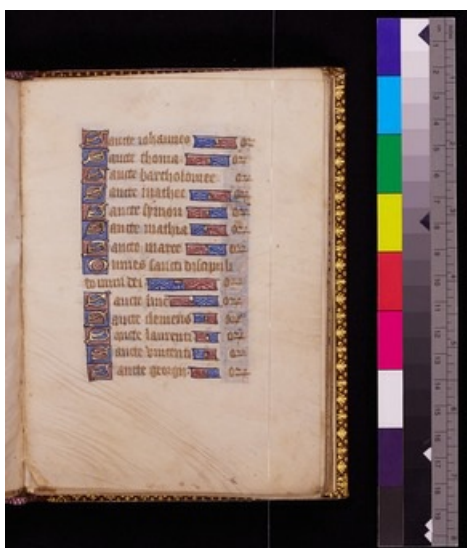 Sancte iohannes ora
Sancte thoma ora
Sancte bartholomee
Sancte mathee ora
Sancte symon ora
Sancte mathia ora
Sancte marce ora
Omnes sancti discipuli
domini dei
Sancte line ora
Sancte clemens ora
Sancte laurenti ora
Sancte vincenti ora
Sancte georgi ora